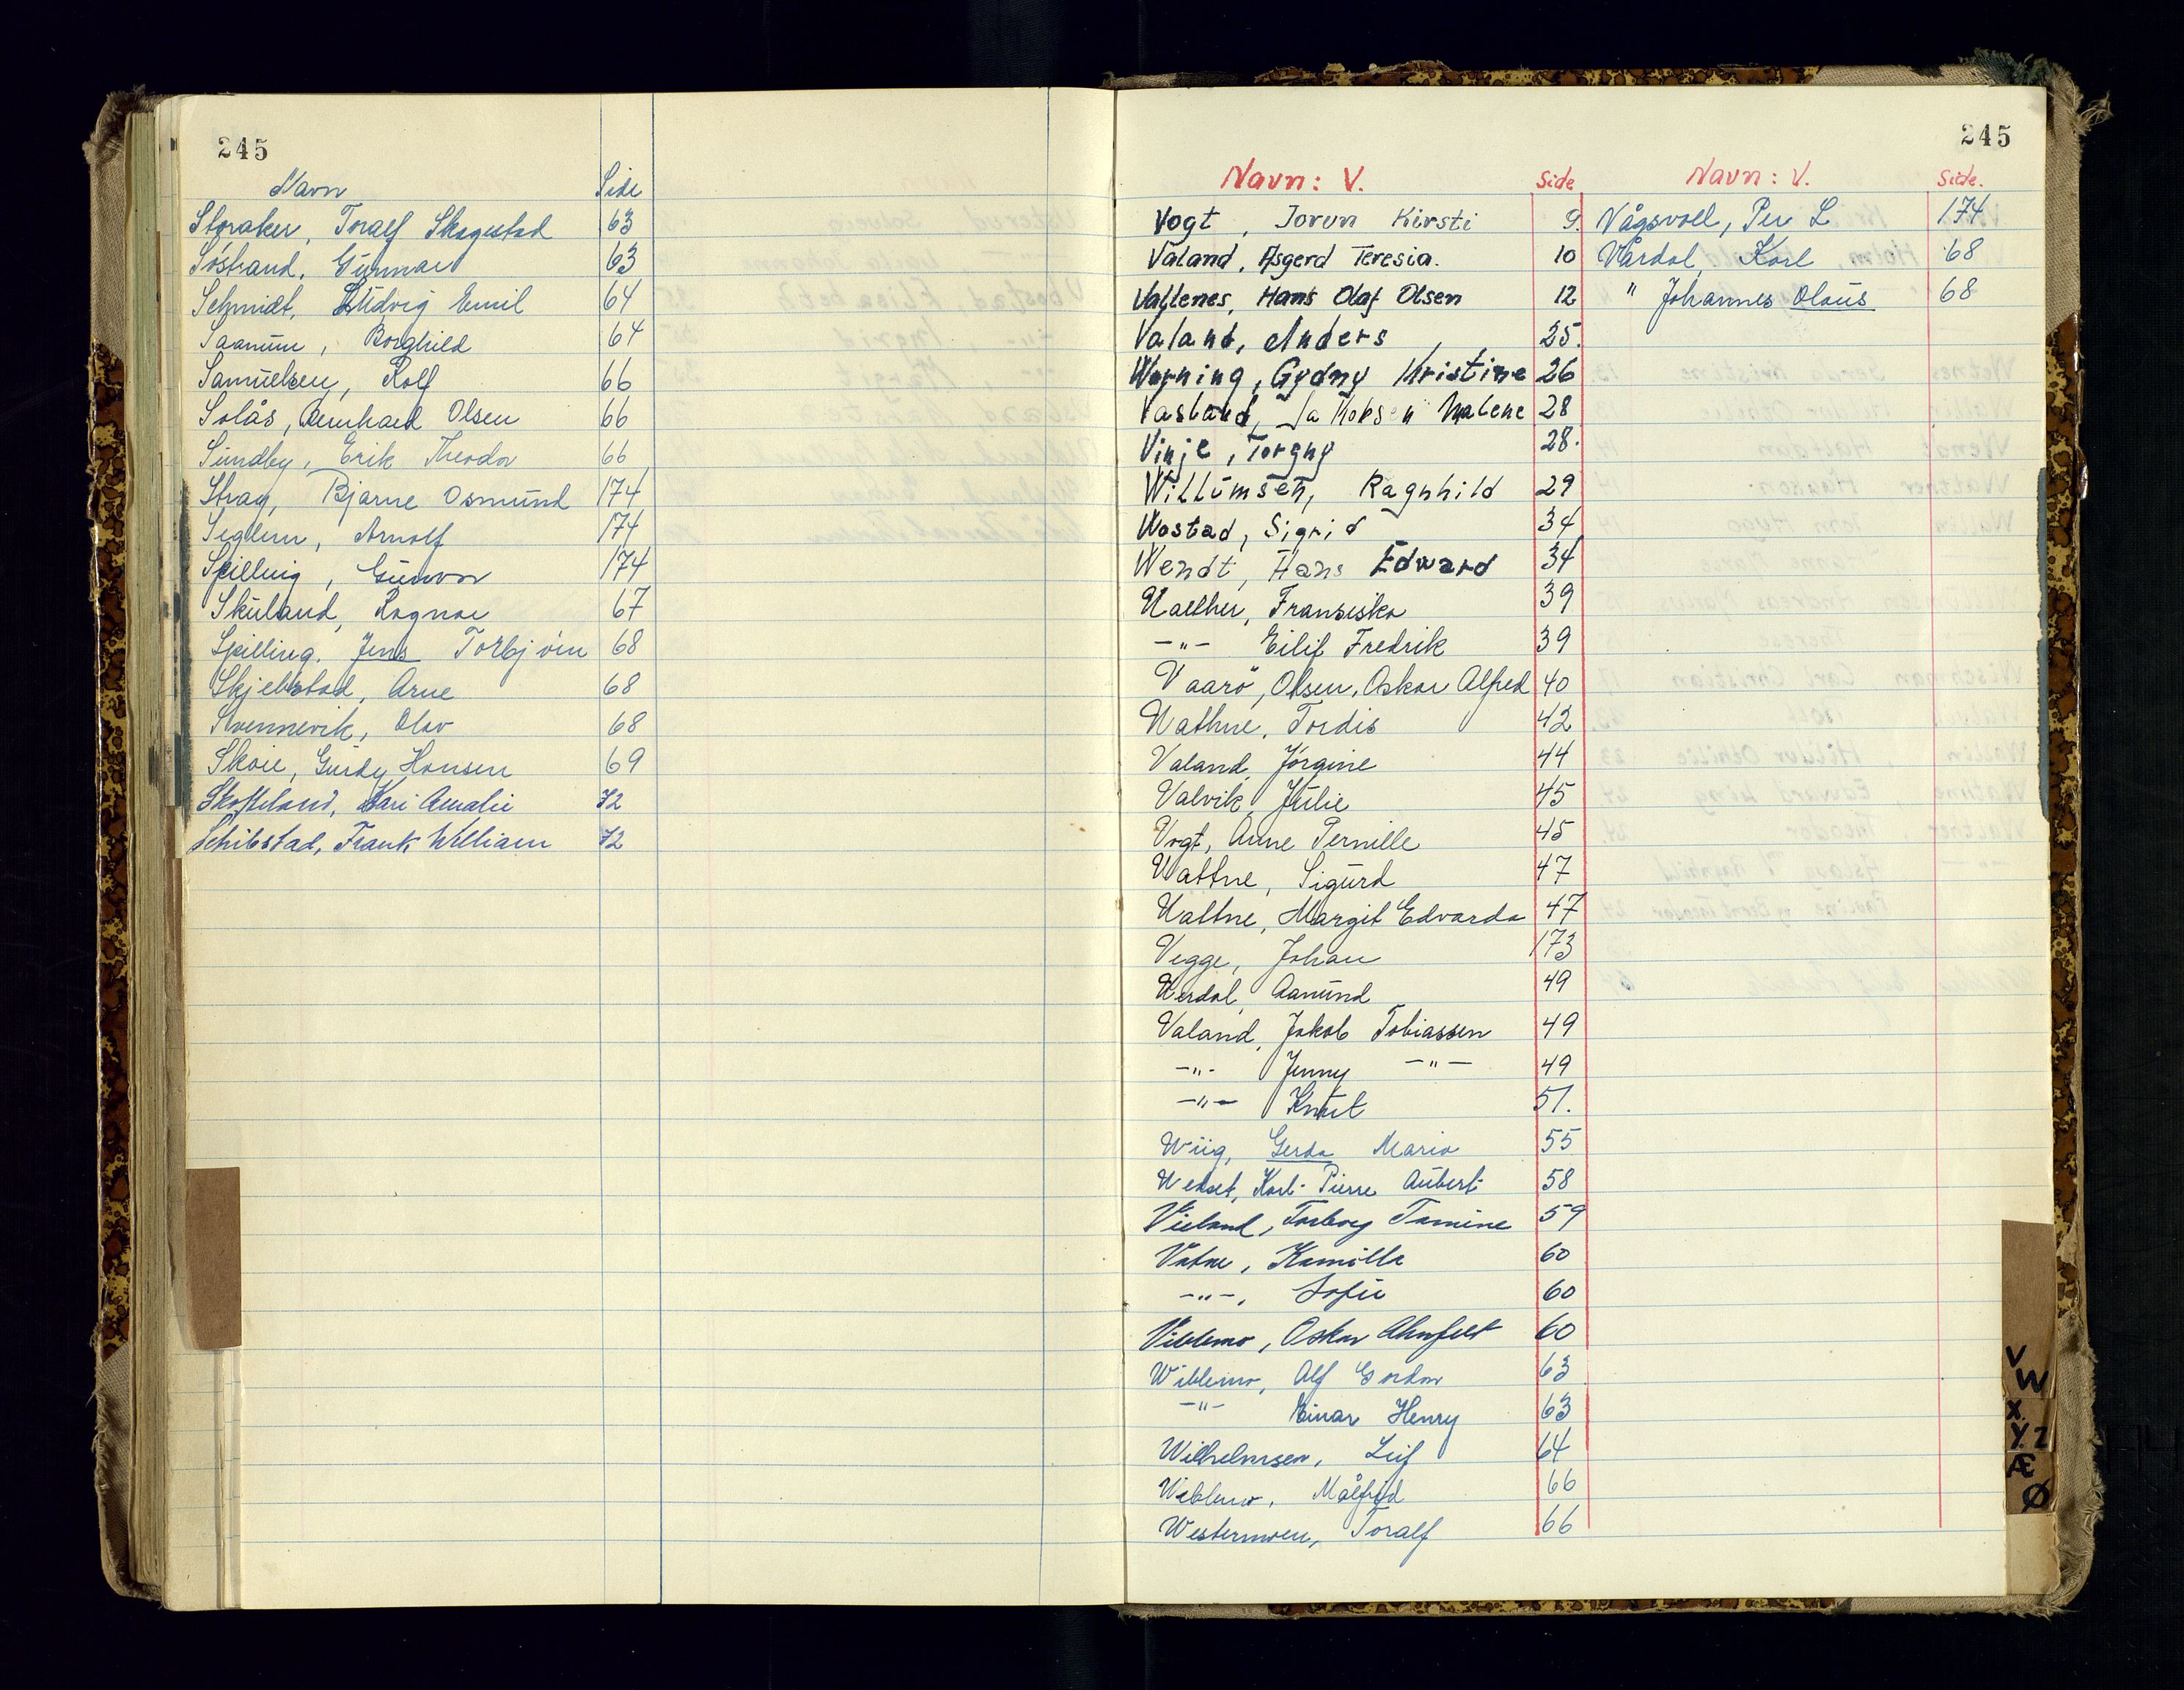 245
Navn Side
Storaker, Toralf Skagestad 63
Söstrand, Gunnar 63
Schmidt, Ludvig Emil 64
Saanum, Borghild 64
Samuelsen, Rolf 66
Solås, Bernhard Olsen 66
Sundby, Erik Theodor 66
Stray, Bjarne Osmund 174
Seglem, Arnolf 174
Spilling, Gunvor 174
Skuland, Ragnar 67
Spilling, Jens Torbjörn 68
Skjebstad, Arne 68
Svennevik, Olav 68
Skoie, Gurdy Hansen 69
Skofteland, Kari Amalie 72
Schibstad, Frank William 72
245
Navn: V. Side
Vogt, Jorun Kirsti 9.
Valand, Asgerd Teresia. 10
Vatlenes, Hans Olaf Olsen 12
Valand, Anders 25.
Werning, Gydny Kristine 26
Vasland, Jakobsen Malene 28
Vinje, Torgny 28.
Willumsen, Ragnhild 29
Wostad, Sigrid 34
Wendt, Hans Edward 34
Walther, Fransiska 39
-"- Eilif Fredrik 39
Vaarö, Olsen, Oskar Alfred 40
Wathne, Tordis 42
Valand, Jörgine 44
Valvik, Julie 45
Vogt, Anne Pernille 45
Wattne, Sigurd 47
Wattne, Margit Edvarda 47
Vegge, Johan 173
Werdal, Aanund 49
Valand, Jakob Tobiassen 49
-"- Jenny -"- 49
-"- Knut 51.
Wiig, Gerda Maria 55
Karl-Pierre Aubert 58
Vieland, Torborg Tomine 59
Vatne, Kamilla 60
-"-, Sofie 60
Viblemo, Oskar Ahnfelt 60
Wiblemo, Alf Gordon 63
-"- Einar Henry 63
Wilhelmsen, Leif 64
Viblemo, Målfrid 66
Westermoen, Toralf 66
Navn: V. Side.
Vågsvoll, Per L 174
Vårdal, Karl 68
" Johannes Olaus 68
V
W
X
Y. Z
Æ
Ø